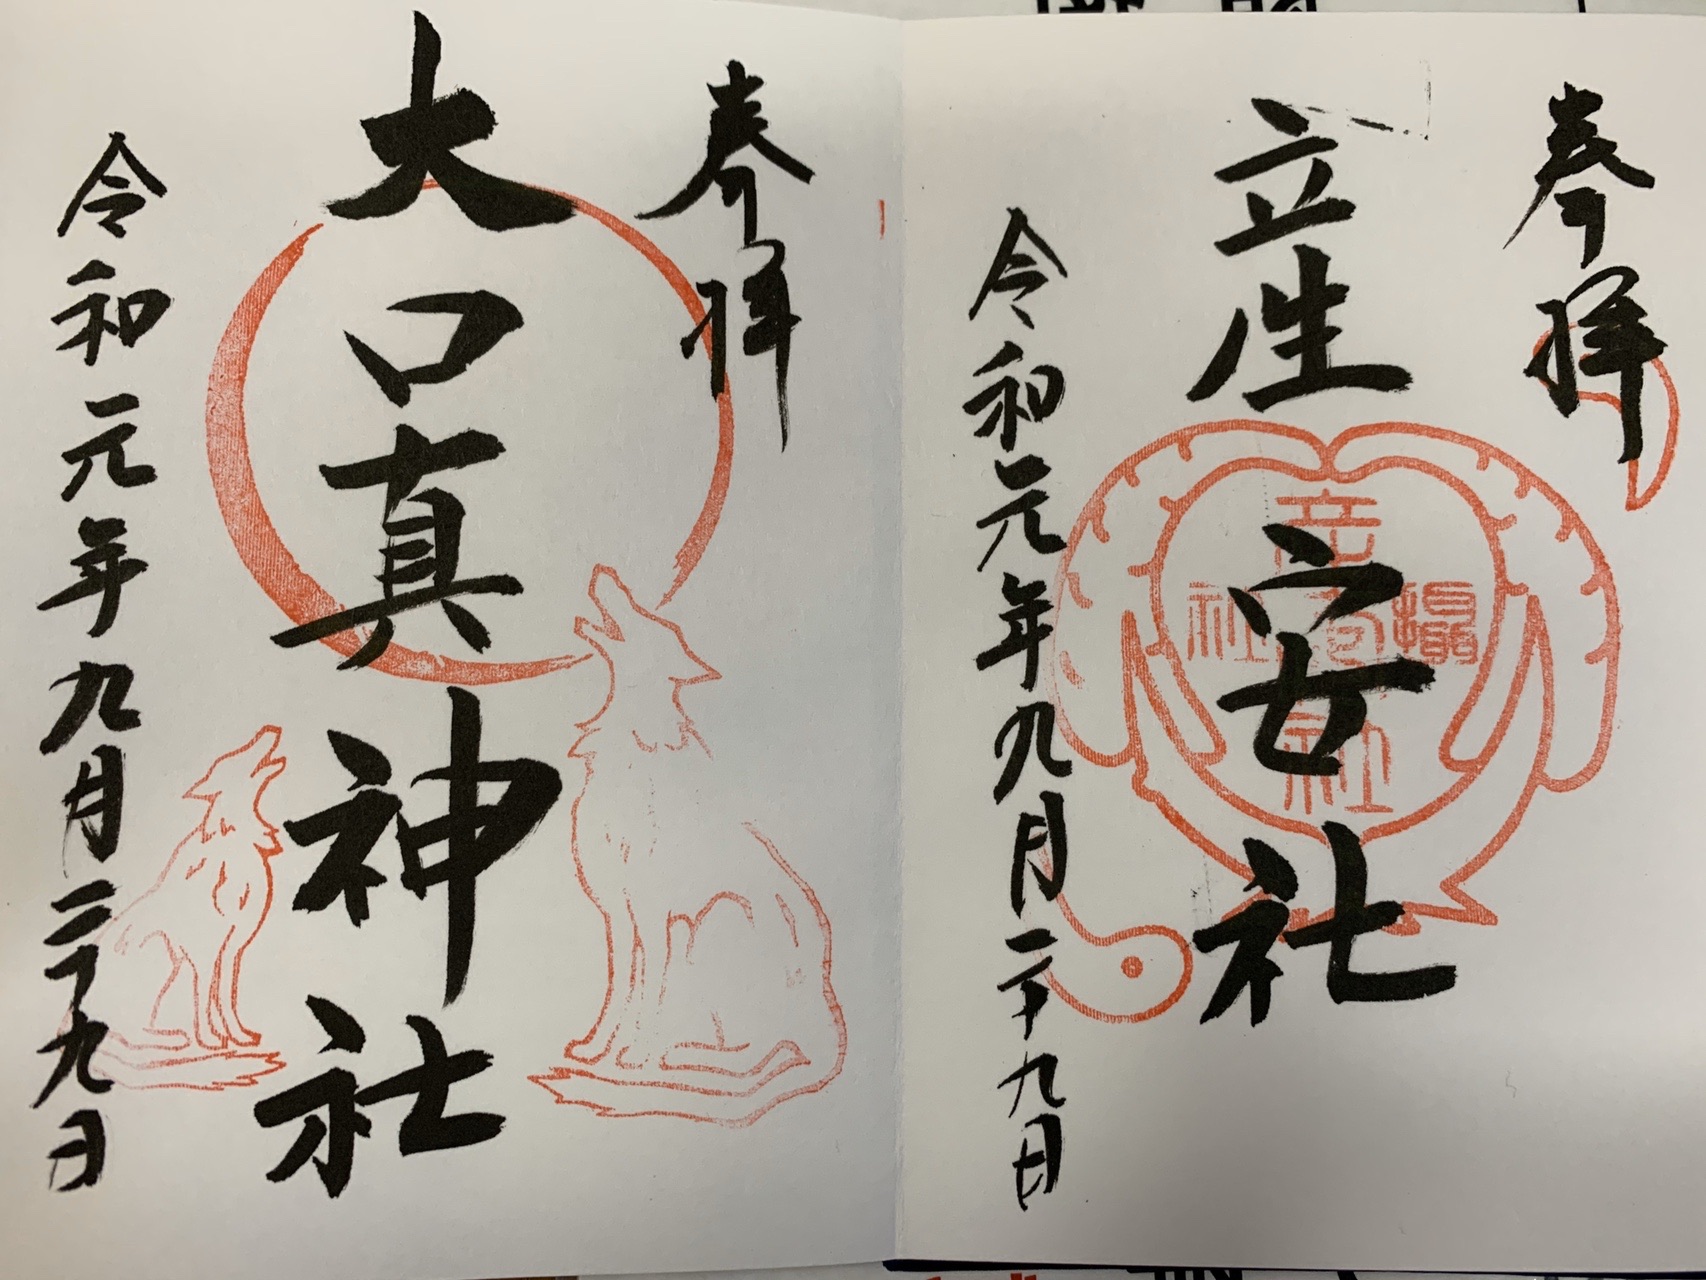 奉拝
産安社
令和元年九月二十九日
攝社
奉拝
大口真神社
令和元年九月二十九日